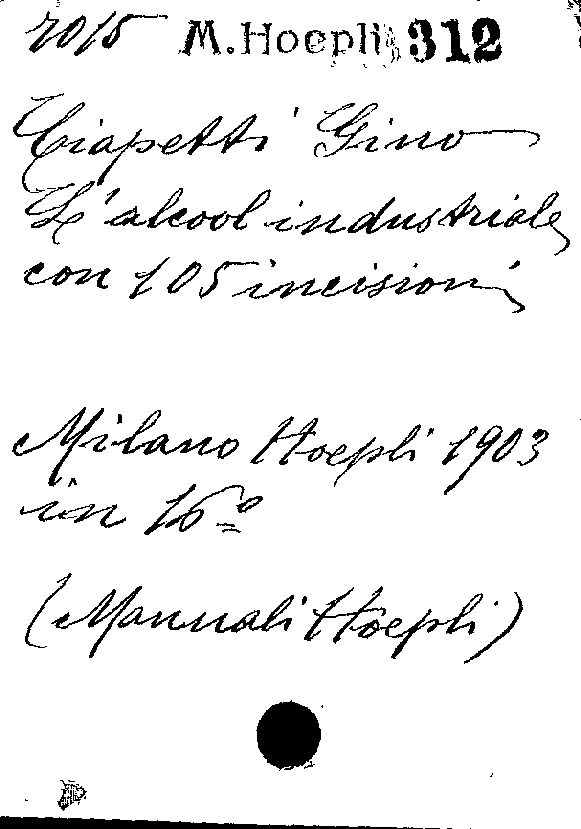 7015 M. Hoepli 312
Ciapetti Gino
L'alcool industriale
con 105 incisioni
Milano Hoepli 1903
in 16º
(Manuali Hoepli)